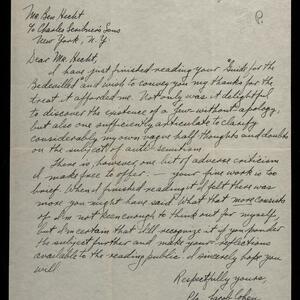 P.
Mr. Ben Hecht
To Charles Scribner's Sons
New York, N.Y.
Dear Mr. Hecht,
I have just finished reading your "Guide for the
Bedevilled and wish to convey you my thanks for the
treat it afforded me. Not only was it delightful
to discover the existence of a Jew without apology,
but also one sufficiently articulate to clarify
considerably my own vague half thoughts and doubts
on the subject of anti-semitism.
There is, however, one bit of adverse criticism
I make free to offer: — your fine work is too
brief. When I finished reading it I felt there was
more you might have said. What that more consists
of I'm not keen enough to think out for myself,
but I'm certain that I'll recognize it if you ponder
the subject further and make your reflections
available to the reading public. I sincerely hope you
will.
Respectfully yours,
Jacob Cohen